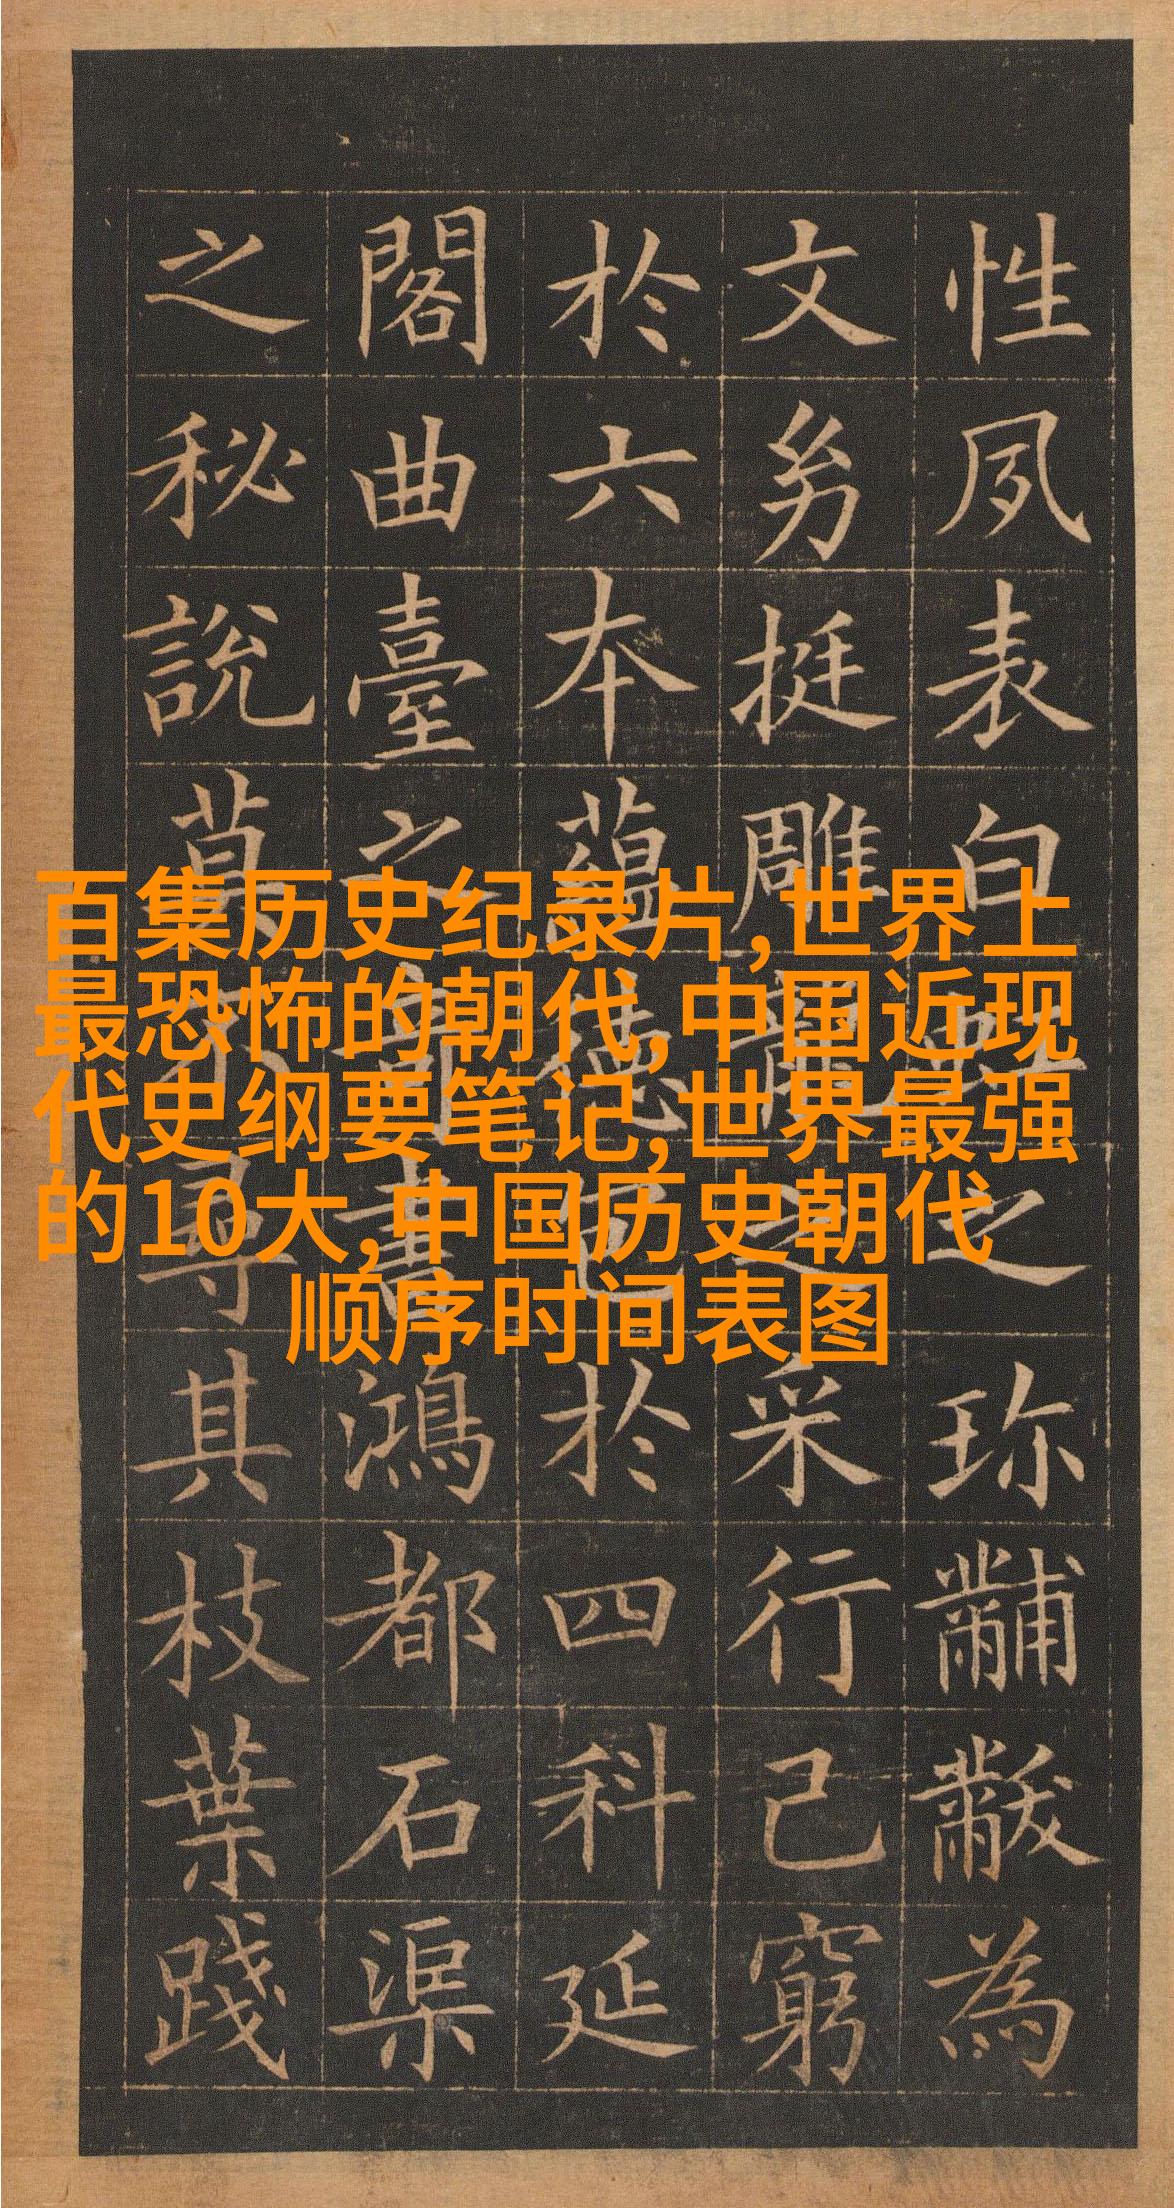 性夙表白虹之珍黼黻為
文幼挺雕龍之采行己窮
於六本蘊德包於四科延
閣曲臺之奧書鴻都石渠
之秘說莫不尋其枝葉踐
百集历史纪录片,世界上
最恐怖的朝代,中国近现
代史纲要笔记,世界最强
的10大,中国历史朝代
顺序时间表图